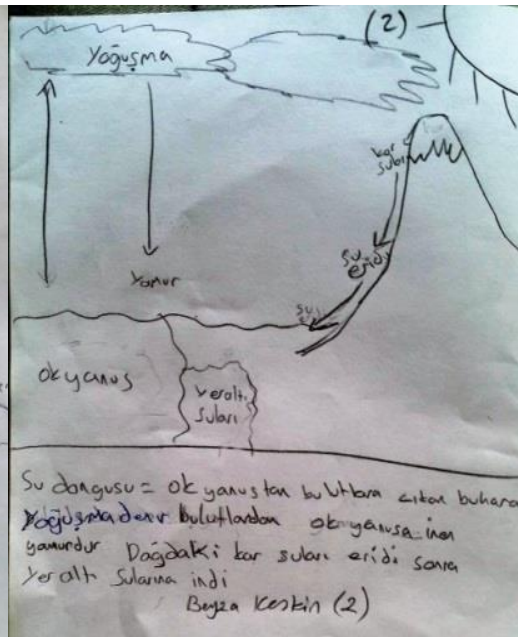 (2)
Yoğuşma
kar
suları
Su
eridi
Yamur
okyanus
Yeraltı
Suları
Su dongusu = okyanustan bulutlara cıkan buhara
Yoğuşma denir bulutlardan okyanusa inen
yamurdur Dağdaki kar suları eridi sonra
Yer altı Sularına indi
Beyza Keskin (2)